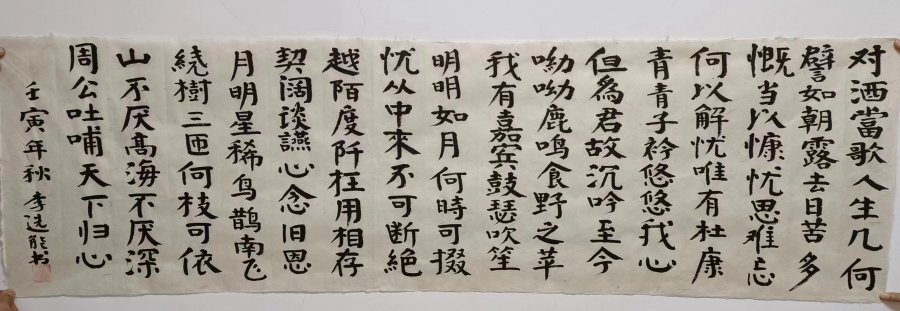 对酒當歌人生几何
譬如朝露去日苦多
慨当以慷忧思难忘
何以解忧唯有杜康
青青子衿悠悠我心
但為君故沉吟至今
呦呦鹿鸣食野之苹
我有嘉宾鼓瑟吹笙
明明如月何時可掇
忧从中來不可断絕
越陌度阡枉用相存
契阔谈讌心念旧恩
月明星稀鸟鹊南飞
繞樹三匝何枝可依
山不厌髙海不厌深
周公吐哺天下归心
壬寅年秋 李选能书